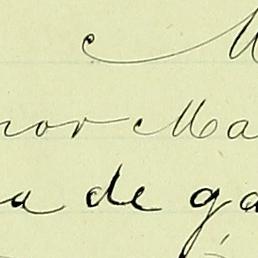 M
nor Ma
a de ga